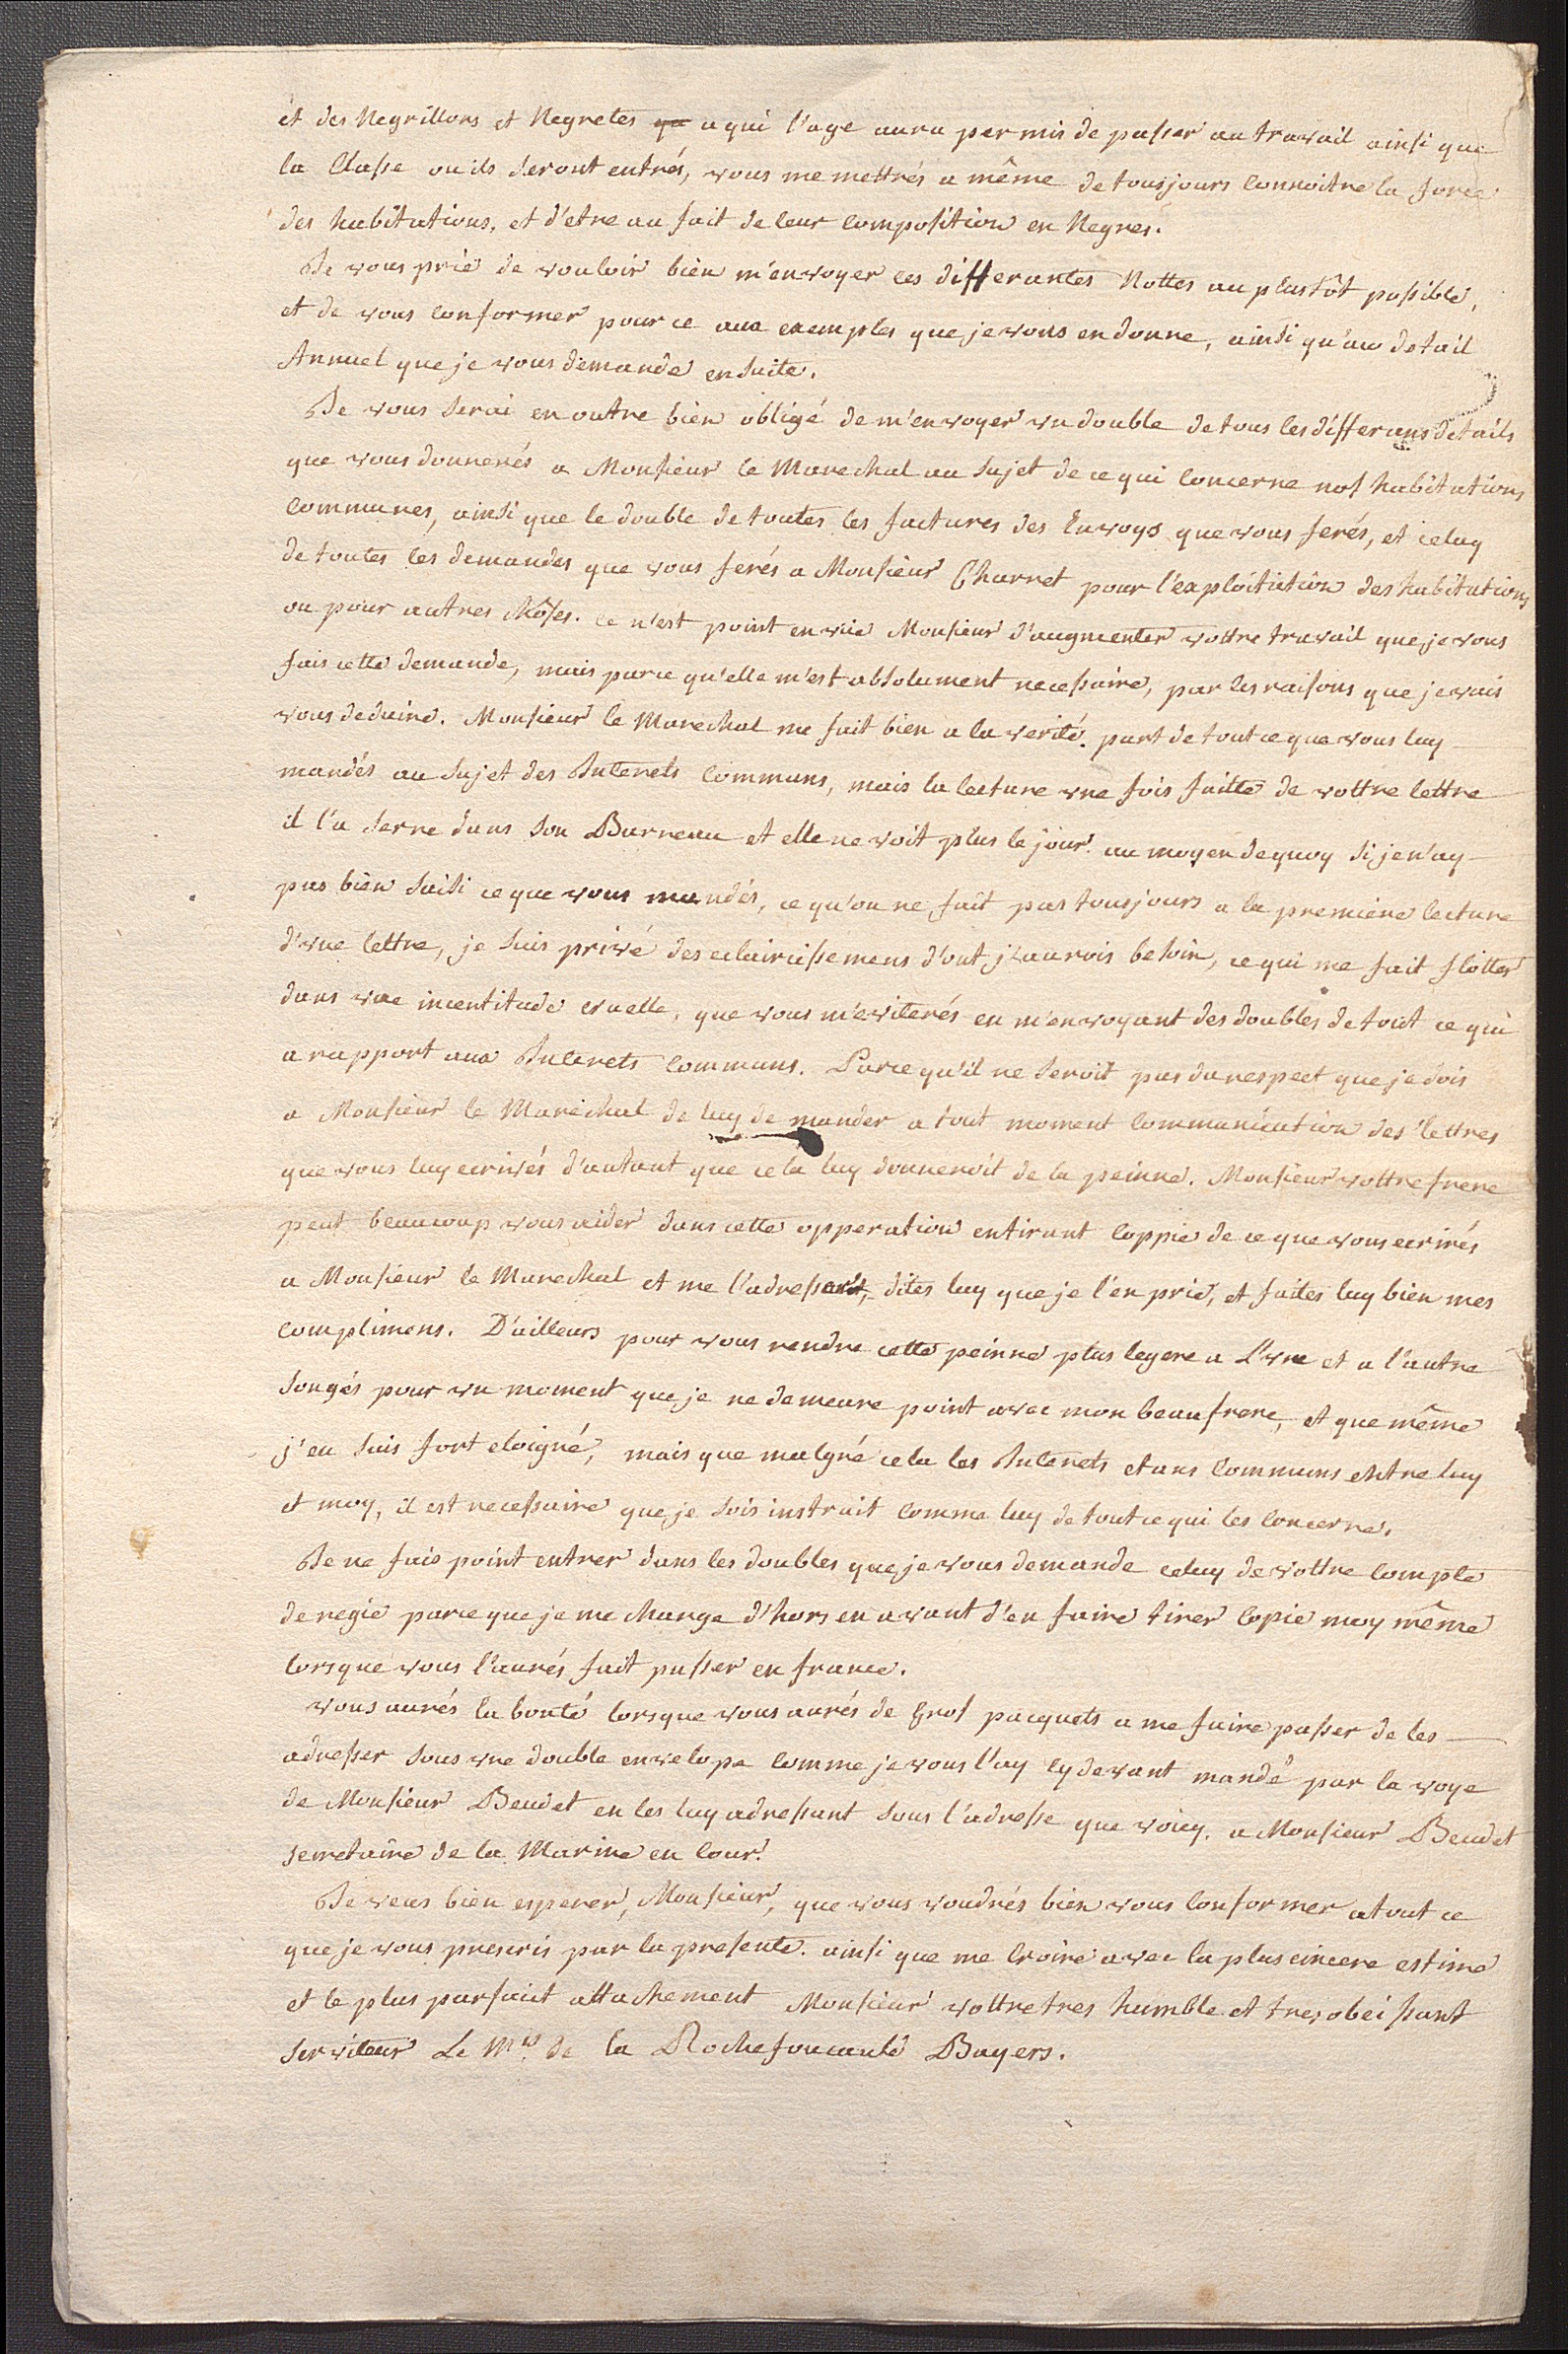 et des Negrillons et Negretes qu a qui l'age aura permis de passer au travail ainsi que
la Classe ou ils seront entrés, vous me mettrés a même de tousjours connoitre la force
des habitations, et d'etre au fait de leur composition en Negres.
Je vous prie de vouloir bien m'envoyer ces differantes Nottes au plustôt possible,
et de vous conformer pour ce aux exemples que je vous en donne, ainsi qu'au detail
Annuel que je vous demande ensuite.
Je vous serai en outre bien obligé de m'envoyer un double de tous les differans details
que vous donnerés a Monsieur le Marechal au sujet de ce qui concerne nos habitations
communes, ainsi que le double de toutes les factures des Envoys que vous ferés, et celuy
de toutes les demandes que vous ferés a Monsieur Charret pour l'exploitation des habitations
ou pour autres choses. ce n'est point en vüe Monsieur d'augmenter vottre travail que je vous
fais cette demande, mais parce qu'elle m'est absolument necessaire, par les raisons que je vais
vous deduire. Monsieur le Marechal me fait bien a la verité part de tout ce que vous luy
mandés au sujet des Interets communs, mais la lecture une fois faitte de vottre lettre
il l'a serre dans son Burreau et elle ne voit plus le jour. au moyen de quoy si je n'ay
pas bien saisi ce que vous mandés, ce qu'on ne fait pas tousjours a la premiere lecture
d'une lettre, je suis privé des eclaircissemens d'ont j'aurois besoin, ce qui me fait flotter
dans une incertitude cruelle, que vous m'eviterés en m'envoyant des doubles de tout ce qui
a rapport aux Interets communs. Parce qu'il ne seroit pas du respect que je dois
a Monsieur le Marechal de luy de mander a tout moment communication des lettres
que vous luy ecrivés d'autant que cela luy donneroit de la peinne. Monsieur vottre frere
peut beaucoup vous aider dans cette opperation en tirant coppie de ce que vous ecrirés
a Monsieur le Marechal et me l'adressant, dites luy que je l'en prie, et faites luy bien mes
complimens. D'ailleurs pour vous rendre cette peinne plus legere a L'une et a l'autre
songés pour un moment que je ne demeure point avec mon beaufrere, et que même
j'en suis fort eloigné, mais que malgré cela les Interets etans communs entre luy
et moy, il est necessaire que je sois instruit comme luy de tout ce qui les concerne.
Je ne fais point entrer dans les doubles que je vous demande celuy de vottre compte
de regie parce que je me charge d'hors en avant d'en faire tirer copie moy même
lorsque vous l'aurés fait passer en france.
vous aurés la bonté lorsque vous aurés de gros pacquets a me faire passer de les
adresser sous une double envelope comme je vous l'ay cy devant mandé par la voye
de Monsieur Beudet en les luy adressant sous l'adresse que voicy. a Monsieur Beudet
secretaire de la Marine en Cour.
Je veus bien esperer, Monsieur, que vous voudrés bien vous conformer a tout ce
que je vous prescris par la presente. ainsi que me croire avec la plus cincere estime
et le plus parfait attachement Monsieur vottre tres humble et tres obeissant
serviteur Le Mis de la Rochefoucauld Bayers.